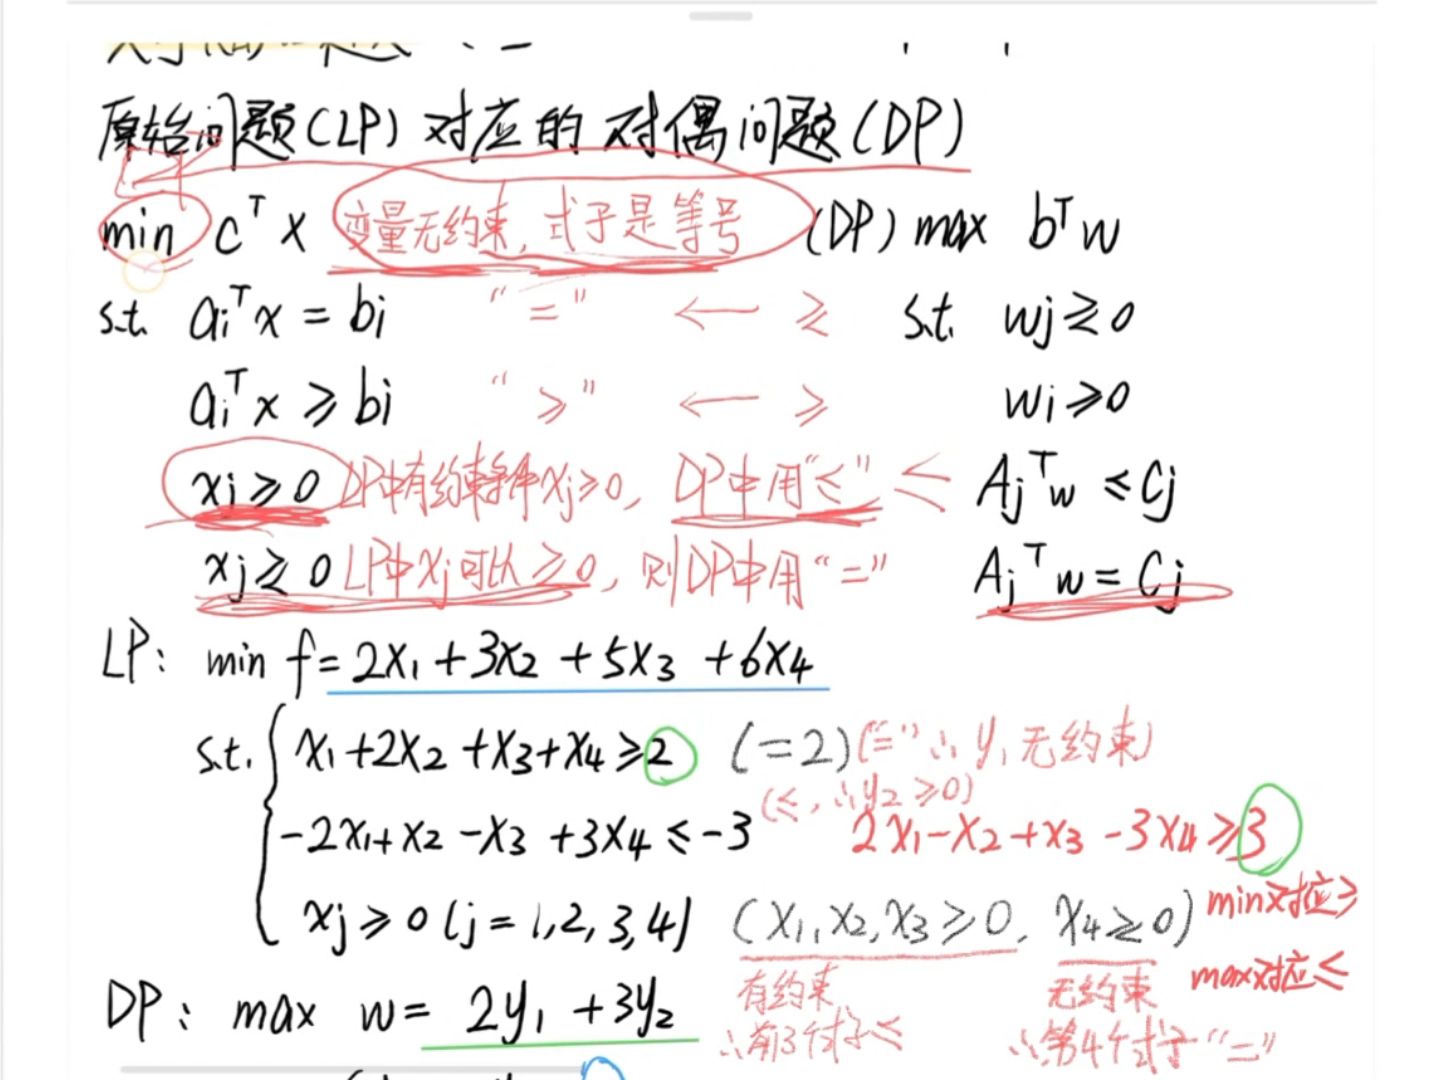 原始问题(LP)对应的对偶问题(DP)
min cᵀx 变量无约束,式子是等号 (DP) max bᵀw
s.t. aᵢᵀx = bi "=" ← ≷ s.t. wj ≷ 0
aᵢᵀx ≥ bi "≥" ← ≥ wi ≥ 0
xj ≥ 0 DP中有约束条件xj≥0, DP中用"≤" ≤ Ajᵀw ≤ Cj
xj ≷ 0 LP中xj可以≷0, 则DP中用"=" Ajᵀw = Cj
LP: min f = 2x₁ + 3x₂ + 5x₃ + 6x₄
s.t. { x₁ + 2x₂ + x₃ + x₄ ≥ 2 (=2) ("=" ∴ y₁无约束)
(≤, ∴ y₂ ≥ 0)
-2x₁ + x₂ - x₃ + 3x₄ ≤ -3 2x₁ - x₂ + x₃ - 3x₄ ≥ 3
xj ≥ 0 (j = 1, 2, 3, 4) (x₁, x₂, x₃ ≥ 0, x₄ ≷ 0) min对应≥
有约束 无约束 max对应≤
DP: max w = 2y₁ + 3y₂ ∴前3个式子≤ ∴第4个式子"="